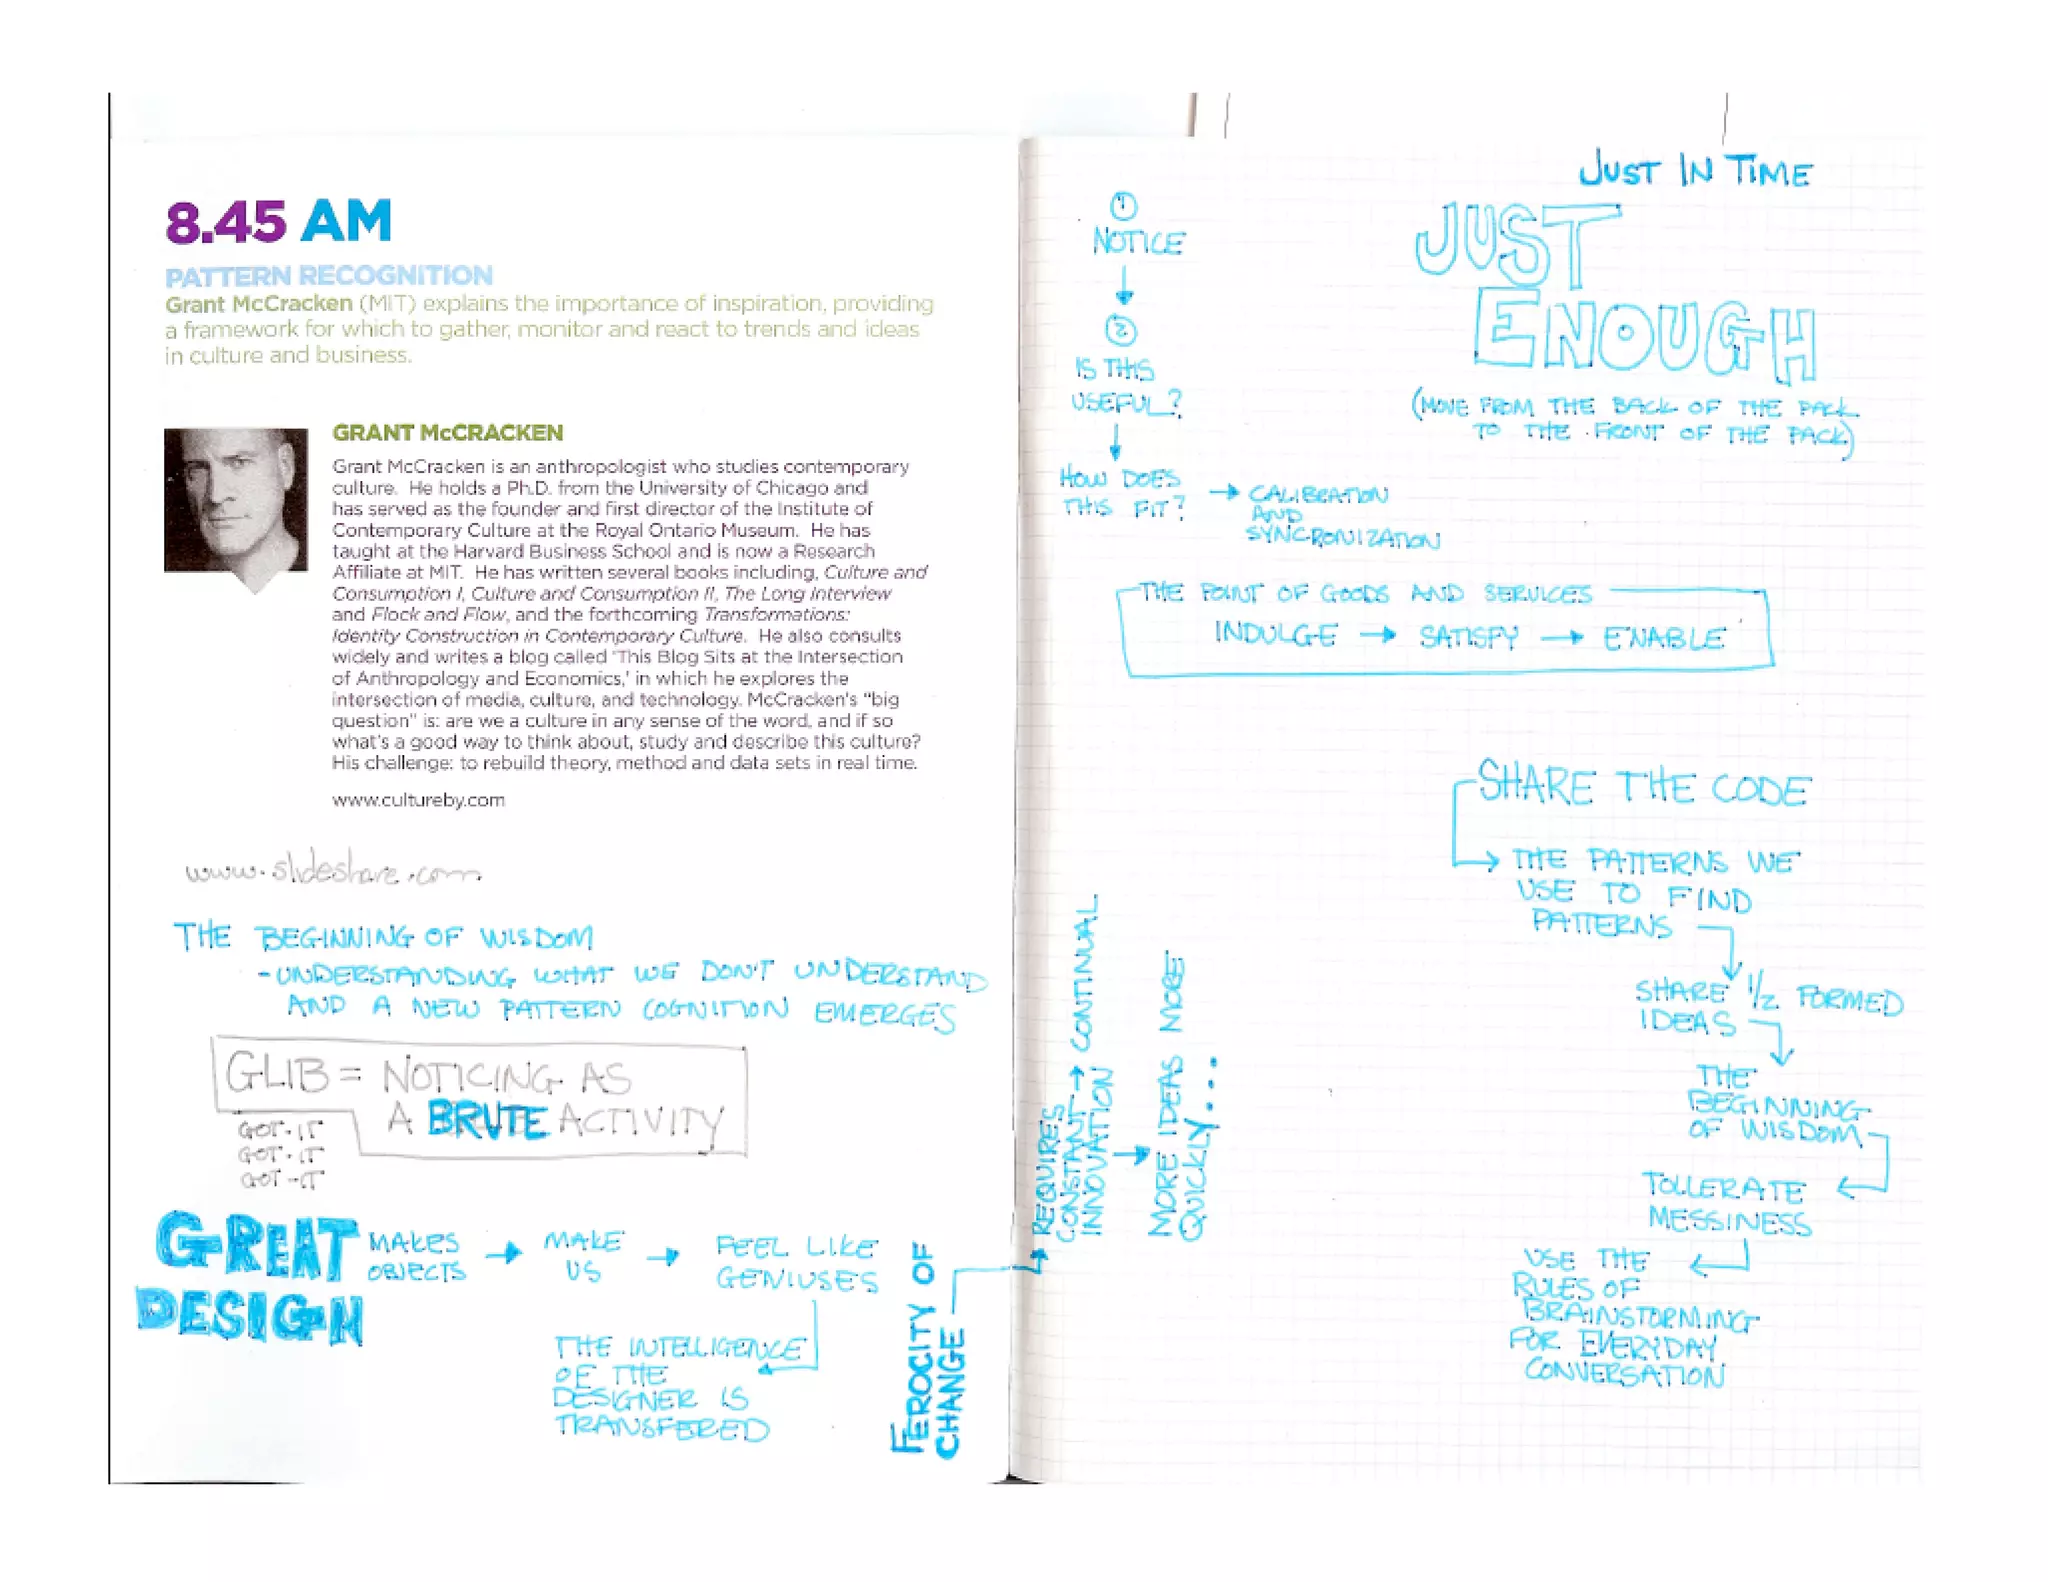 8.45 AM
PATTERN RECOGNITION
Grant McCracken (MIT) explains the importance of inspiration, providing
a framework for which to gather, monitor and react to trends and ideas
in culture and business.
GRANT McCRACKEN
Grant McCracken is an anthropologist who studies contemporary
culture. He holds a Ph.D. from the University of Chicago and
has served as the founder and first director of the Institute of
Contemporary Culture at the Royal Ontario Museum. He has
taught at the Harvard Business School and is now a Research
Affiliate at MIT. He has written several books including, Culture and
Consumption I, Culture and Consumption II, The Long Interview
and Flock and Flow, and the forthcoming Transformations:
Identity Construction in Contemporary Culture. He also consults
widely and writes a blog called 'This Blog Sits at the Intersection
of Anthropology and Economics,' in which he explores the
intersection of media, culture, and technology. McCracken's "big
question" is: are we a culture in any sense of the word, and if so
what's a good way to think about, study and describe this culture?
His challenge: to rebuild theory, method and data sets in real time.
www.cultureby.com
www.slideshare.com
THE BEGINNING OF WISDOM
- UNDERSTANDING WHAT WE DON'T UNDERSTAND
AND A NEW PATTERN COGNITION EMERGES
GLIB = NOTICING AS
A BRUTE ACTIVITY
GOT-IT
GOT-IT
GOT-IT
GREAT
DESIGN
MAKES
OBJECTS
→ MAKE
US
→ FEEL LIKE
GENIUSES
THE INTELLIGENCE
OF THE
DESIGNER IS
TRANSFERED
FEROCITY OF
CHANGE
REQUIRES
CONSTANT → CONTINUAL
INNOVATION
→ MORE IDEAS MORE
QUICKLY...
① NOTICE
②
IS THIS
USEFUL?
HOW DOES
THIS FIT?
→ CALIBRATION
AND
SYNCRONIZATION
JUST IN TIME
JUST
ENOUGH
(MOVE FROM THE BACK OF THE PACK
TO THE FRONT OF THE PACK)
THE POINT OF GOODS AND SERVICES
INDULGE → SATISFY → ENABLE
SHARE THE CODE
→ THE PATTERNS WE
USE TO FIND
PATTERNS
SHARE 1/2 FORMED
IDEAS
THE
BEGINNING
OF WISDOM
TOLLERATE
MESSINESS
USE THE
RULES OF
BRAINSTORMING
FOR EVERYDAY
CONVERSATION